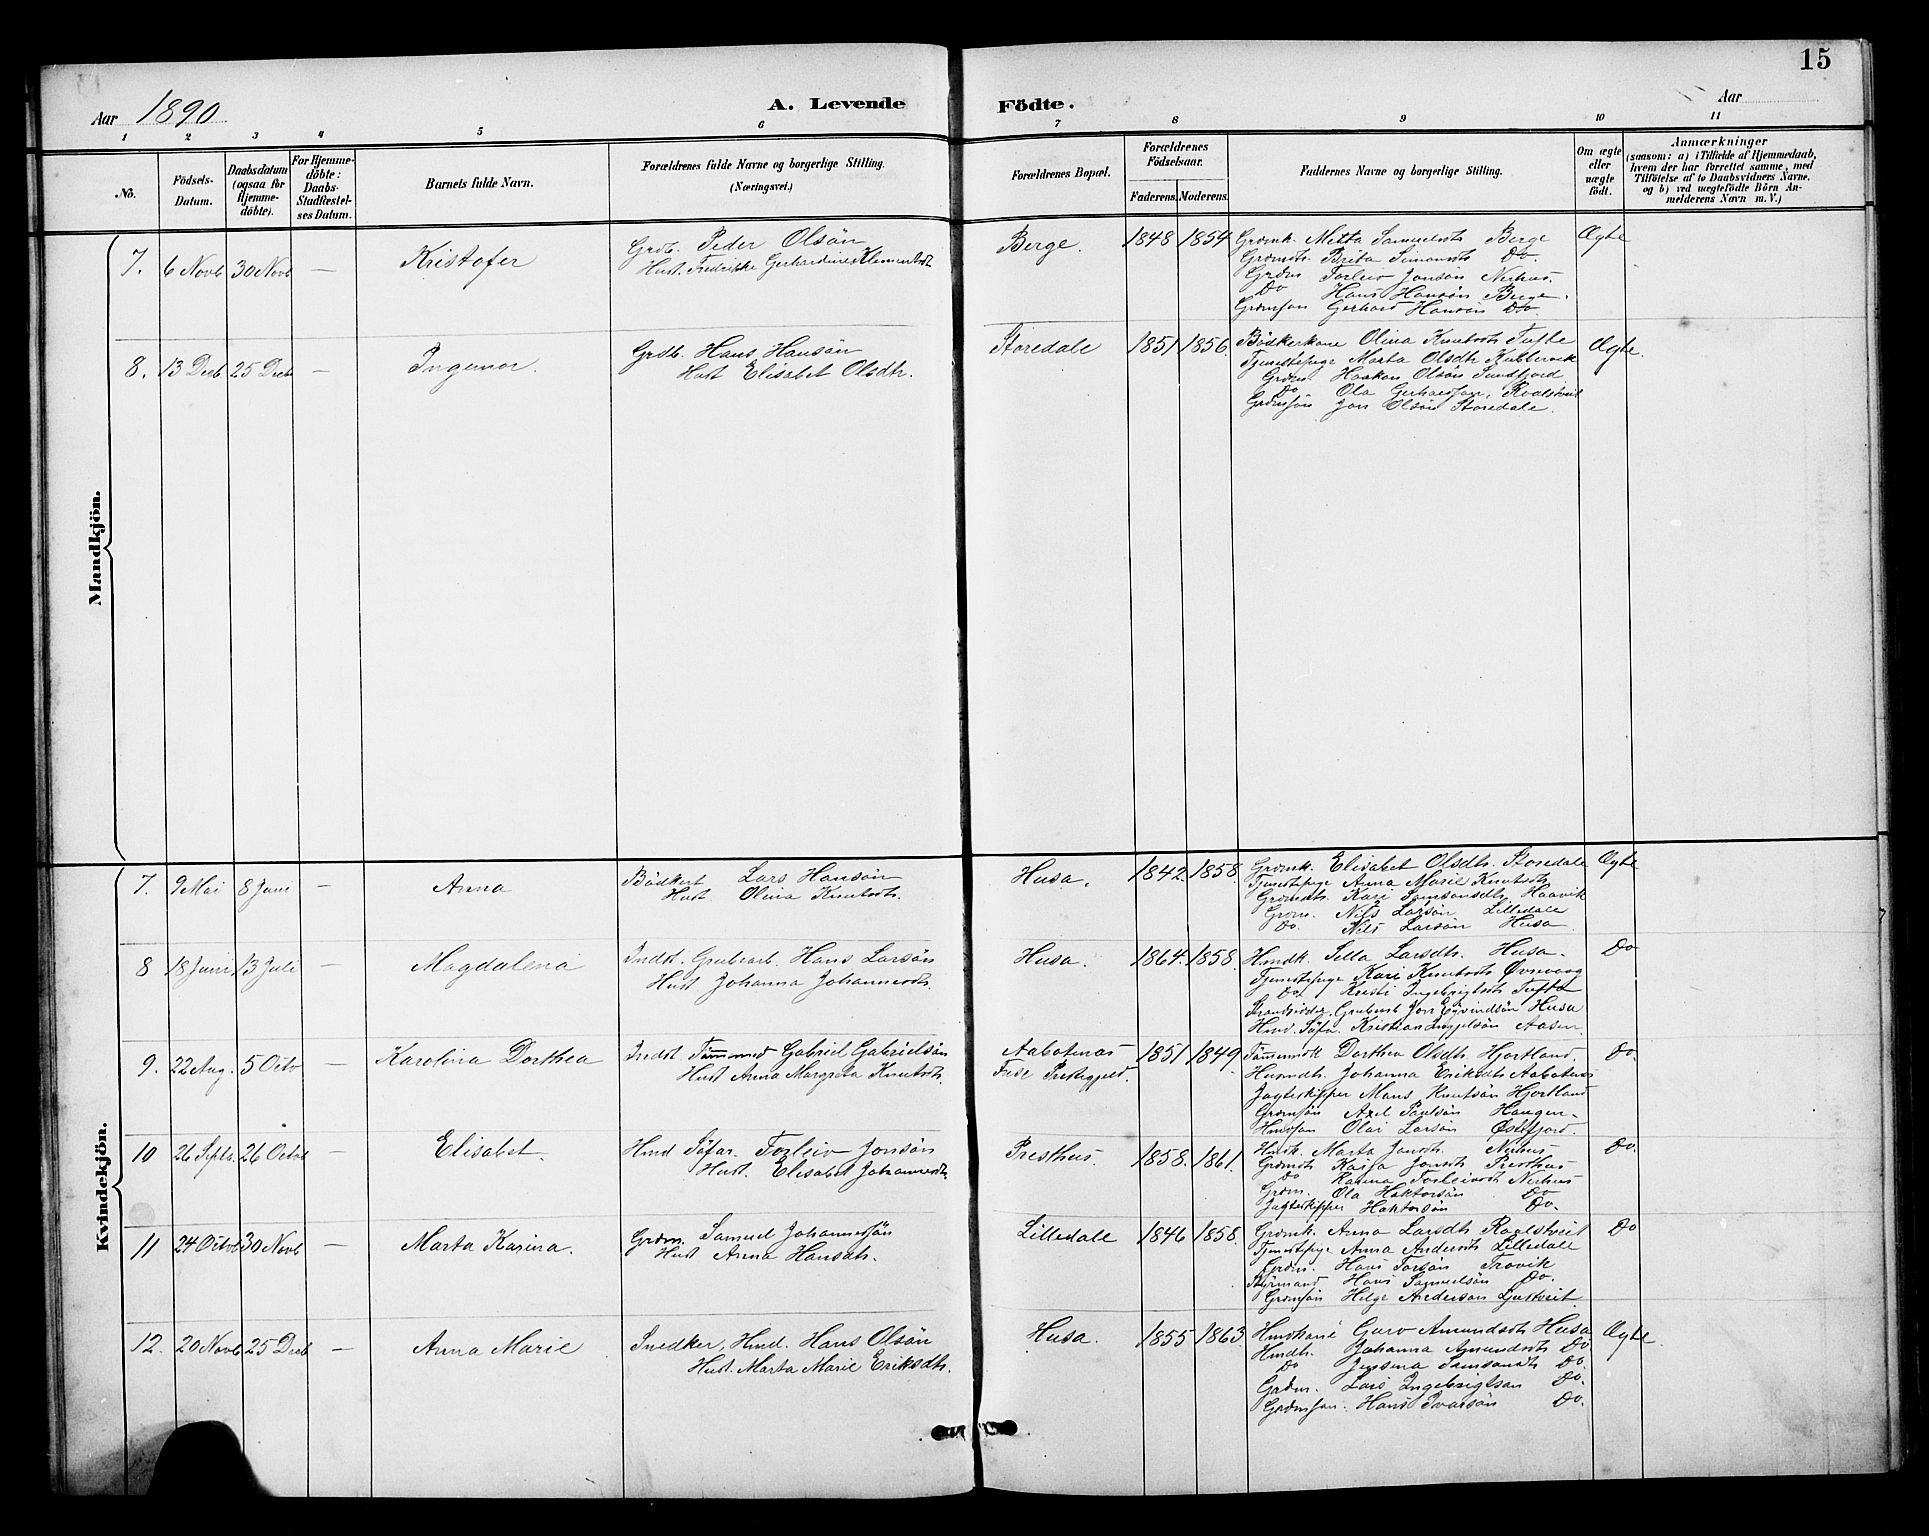 15
Aar 1890 A. Levende Födte. Aar
1 2 3 4 5 6 7 8 9 10 11
No.
Födsels-Datum.
Daabsdatum (ogsaa for Hjemme-döbte).
For Hjemme-döbte: Daabs-Stadfæstel-ses Datum.
Barnets fulde Navn.
Forældrenes fulde Navne og borgerlige Stilling.
(Næringsvei.)
Forældrenes Bopæl.
Forældrenes Födselsaar.
Faderens. Moderens.
Faddernes Navne og borgerlige Stilling.
Om ægte eller uægte födt.
Anmærkninger
(saasom: a) i Tilfælde af Hjemmedaab,
hvem der har forrettet samme, med
Tilföielse af to Daabsvidners Navne,
og b) ved uægtefödte Börn An-
melderens Navn m. V.)
Mandkjön.
7. 6 Novb 30 Novb — Kristofer
Grdb. Peder Olsön
Hust. Fredrikke Gerhardine Klementsdt.
Berge. 1848 1854
Grdmk. Metta Samuelsdt Berge
Grdmdt. Brita Simonsdt Do.
Grdm Torleiv Jonsön Nerhus.
Do Hans Hansön Berge.
Grdmsön Gerhard Hansön Do
Ægte
8. 13 Decb 25 Decb — Ingemar.
Grdb. Hans Hansön
Hust Elisabet Olsdtr.
Storedale 1851 1856.
Bödkerkone Olina Knutsdt Tufte
Tjenestepige Marta Olsdtr
Grdm. Haakon Olsön Sundfjord
Do Ola Gerhardsön,
Grdmsön Jon Olsön Storedale.
Ægte.
Kvindekjön.
7. 9 Mai 8 Juni — Anna
Bödkert Lars Hansön
Hust Olina Knutsdt.
Husa. 1842. 1858.
Grdmk. Elisabet Olsdtr. Storedale
Tjenestepige Anna Marie Knutsdt
Grdmdt. Kari Samsonsdt Haavik
Grdm. Nils Larsön Lilledale
Do. Nils Larsön Husa
Ægte
8 18 Juni 13 Juli — Magdalena
Indst. Grubearb. Hans Larsön
Hust Johanna Johannesdt.
Husa. 1864. 1858.
Hmdk. Sella Larsdtr. Husa.
Tjenestepige Kari Knutsdt Øvrevaag
Do Kristi Ingebrigtsdt Tufta
Strandsidder, Grubearb Jon Eyvindsön Husa
Hmd. Söfa. Kristian Aasen
Do
9. 22 Aug. 5 Octo — Karolina Dorthea
Indst. Tömmermd Gabriel Gabrielsön
Hust Anna Margreta Knutsdt.
Aabotenes
Fuse Prestegjeld.
1851 1849.
Dorthea Olsdtr. Hjortland.
Johanna Eriksdt Aabotenes
Jagteskipper Mons Knutsön Hjortland
Grdmsön Axel Paulsön Haugen.
Hmdsön Olai Larsön Østfjord.
Do
10 26 Septr. 26 Octor — Elisabet.
Hmd Söfar. Torleiv Jonsön
Hust. Elisabet Johannesdt.
Presthus. 1858. 1861.
Hmdk. Marta Jonsdt. Nerhus
Grdmdt Kaisa Jonsdt. Presthus
Do Karina Torleivsdt Nerhus
Grdm. Ola Haktorsön Do
Jagteskipper Haktorsön Do.
Do.
11 24 Octob 30 Novb — Marta Karina.
Grdm. Samuel Johannessön
Hust Anna Hansdt.
Lilledale 1846 1858.
Grdmk. Anna Larsdtr. Roalstveit
Tjenestepige Anna Andersdt Lilledale
Grdm. Hans Torsön Trovik
Styrmand Hans Samuelsön Do.
Grdmsön Helge Andersön
Do
12. 20 Novb 25 Decb — Anna Marie
Snedker, Hmd. Hans Olsön
Hust. Marta Marie Eriksdtr.
Husa. 1855 1863.
Hmdkone Guro Amundsdt Husa
Hmdtr. Johanna Amundsdt Do.
Do Jensina Samsonsdt Do.
Grdm. Lars Ingebrigtsen Do.
Grdmsön. Hans Ivarsön Do.
Ægte.